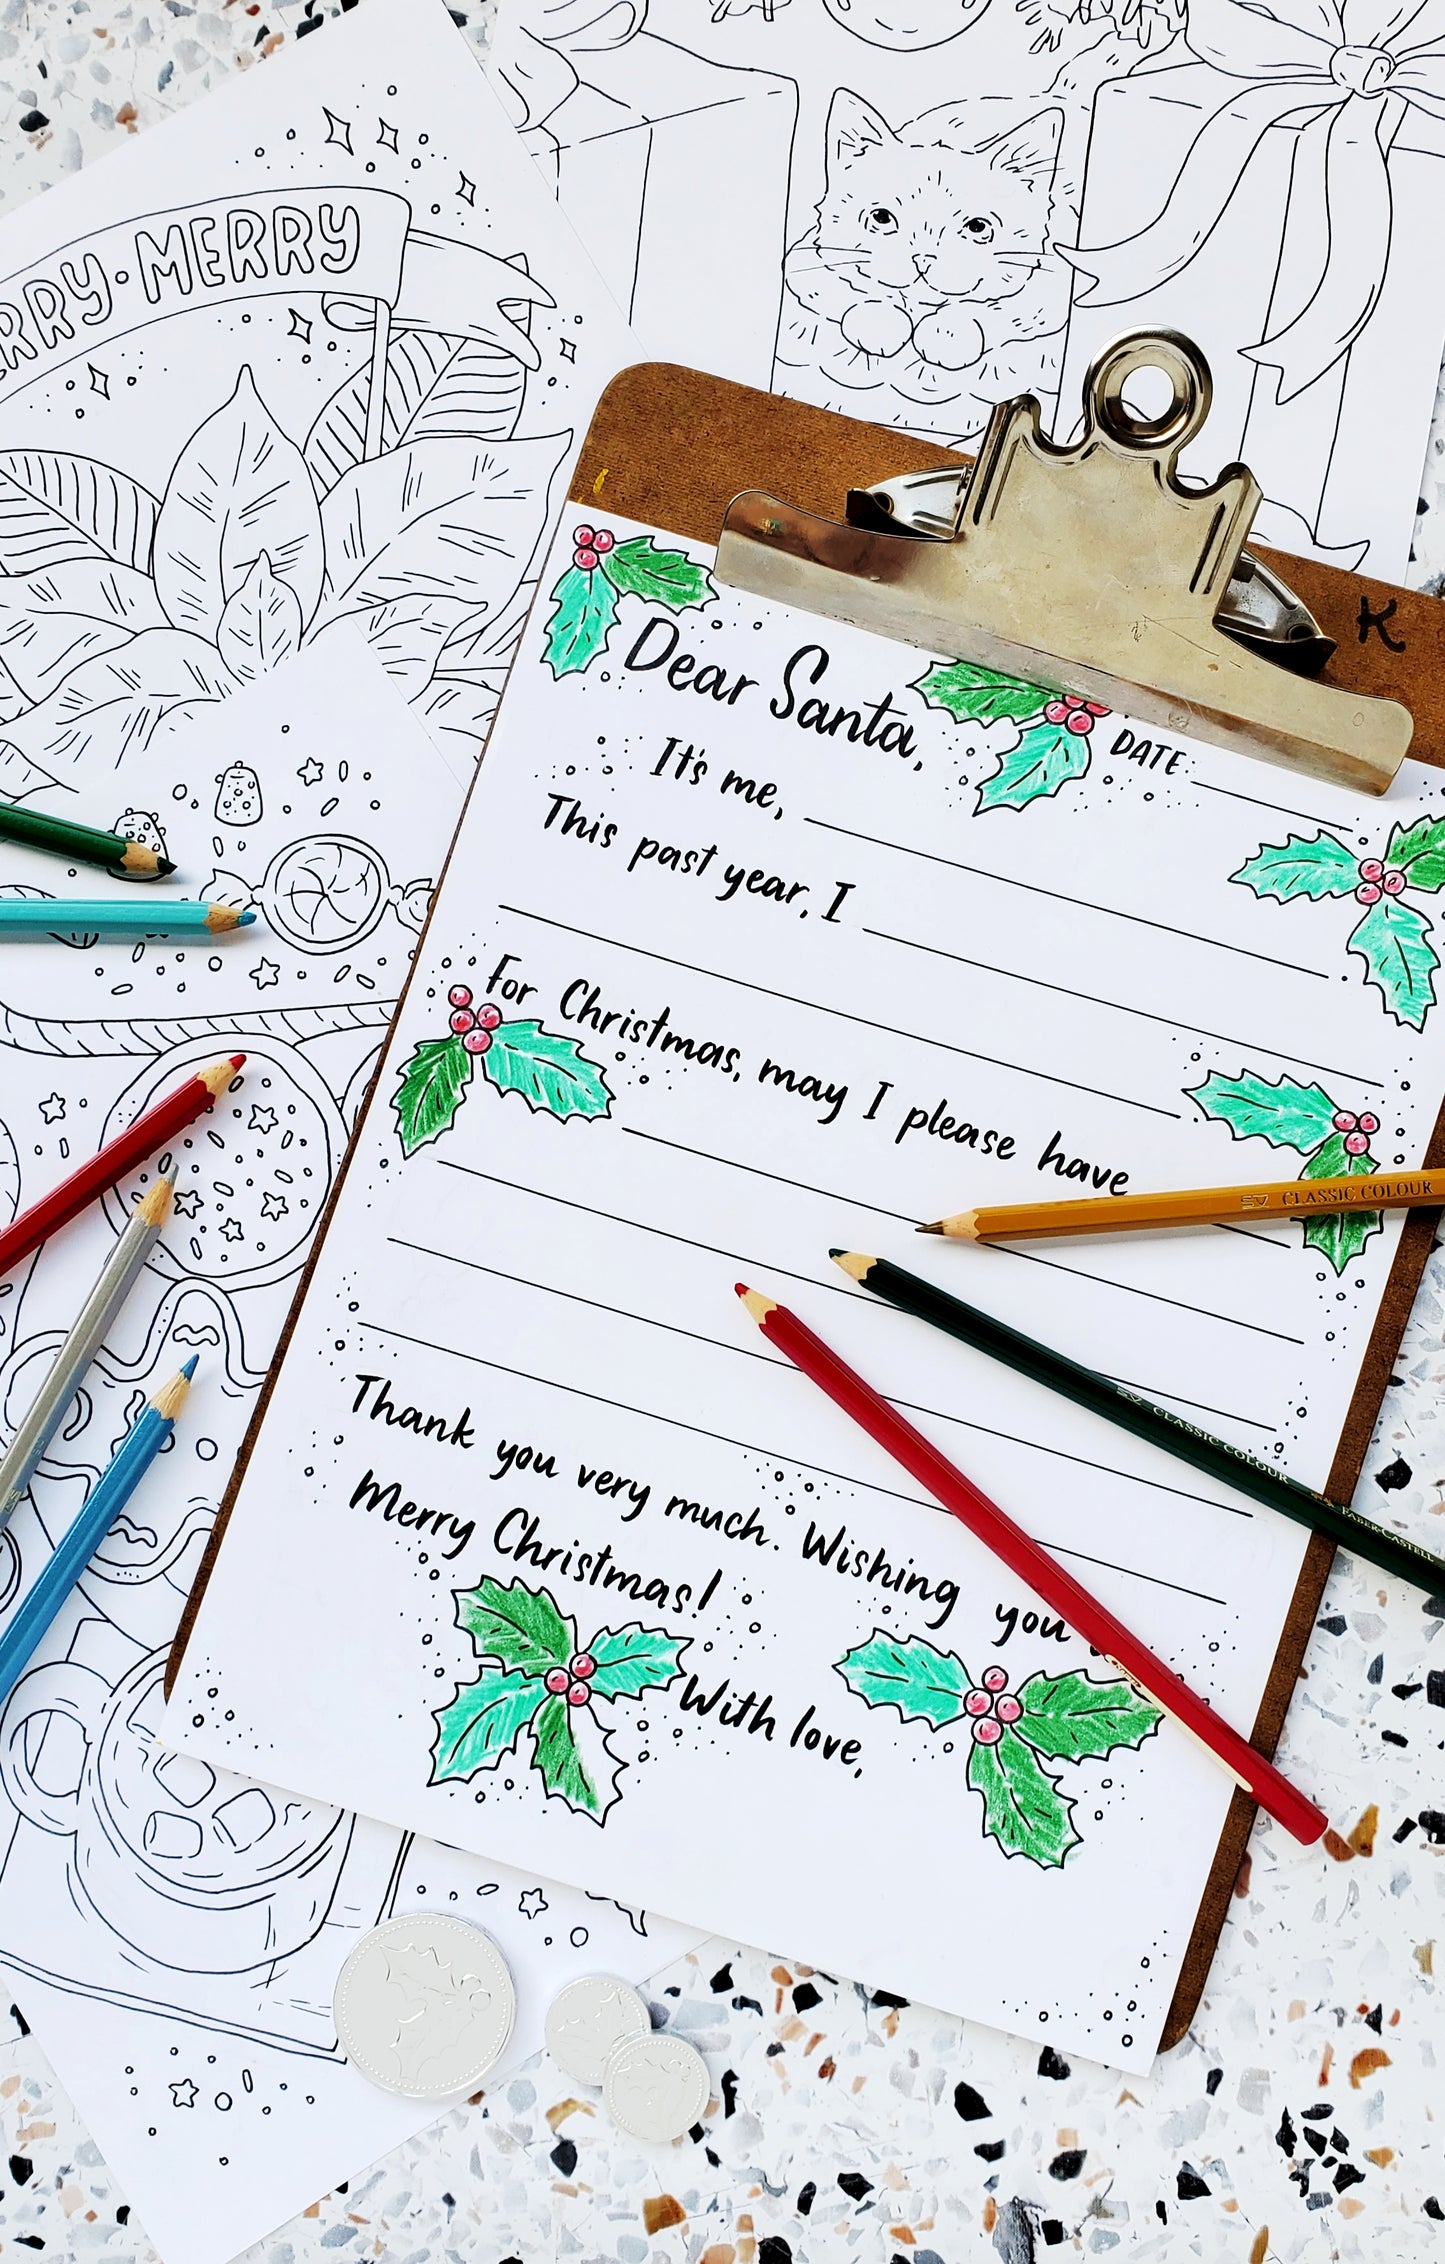 RRY·MERRY
K
Dear Santa,
DATE:
It's me,
This past year, I
For Christmas, may I please have
CLASSIC COLOUR
CLASSIC COLOUR FABER-CASTELL
Thank you very much. Wishing you
Merry Christmas!
With love,